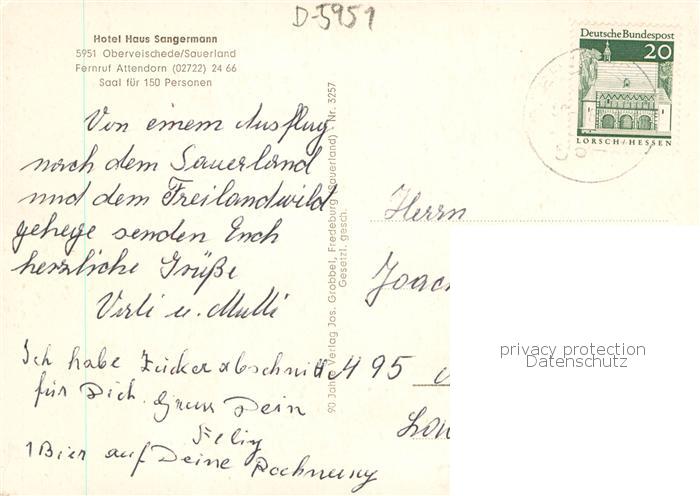 D-5951
Hotel Haus Sangermann
5951 Oberveischede/Sauerland
Fernruf Attendorn (02722) 24 66
Saal für 150 Personen
Deutsche Bundespost
20
LORSCH/HESSEN
Von einem Ausflug
nach dem Sauerland
und dem Freilandwild
gehege senden Euch
herzliche Grüße
u. Mutti
Ich habe Zuckerabschnitt
für Dich. Gruss Dein
1 Bier auf Deine Rechnung
90 Jahre Verlag Jos. Grobbel, Fredeburg (Sauerland) Nr. 3257
Gesetzl. gesch.
Herrn
Joac
495
privacy protection
Datenschutz